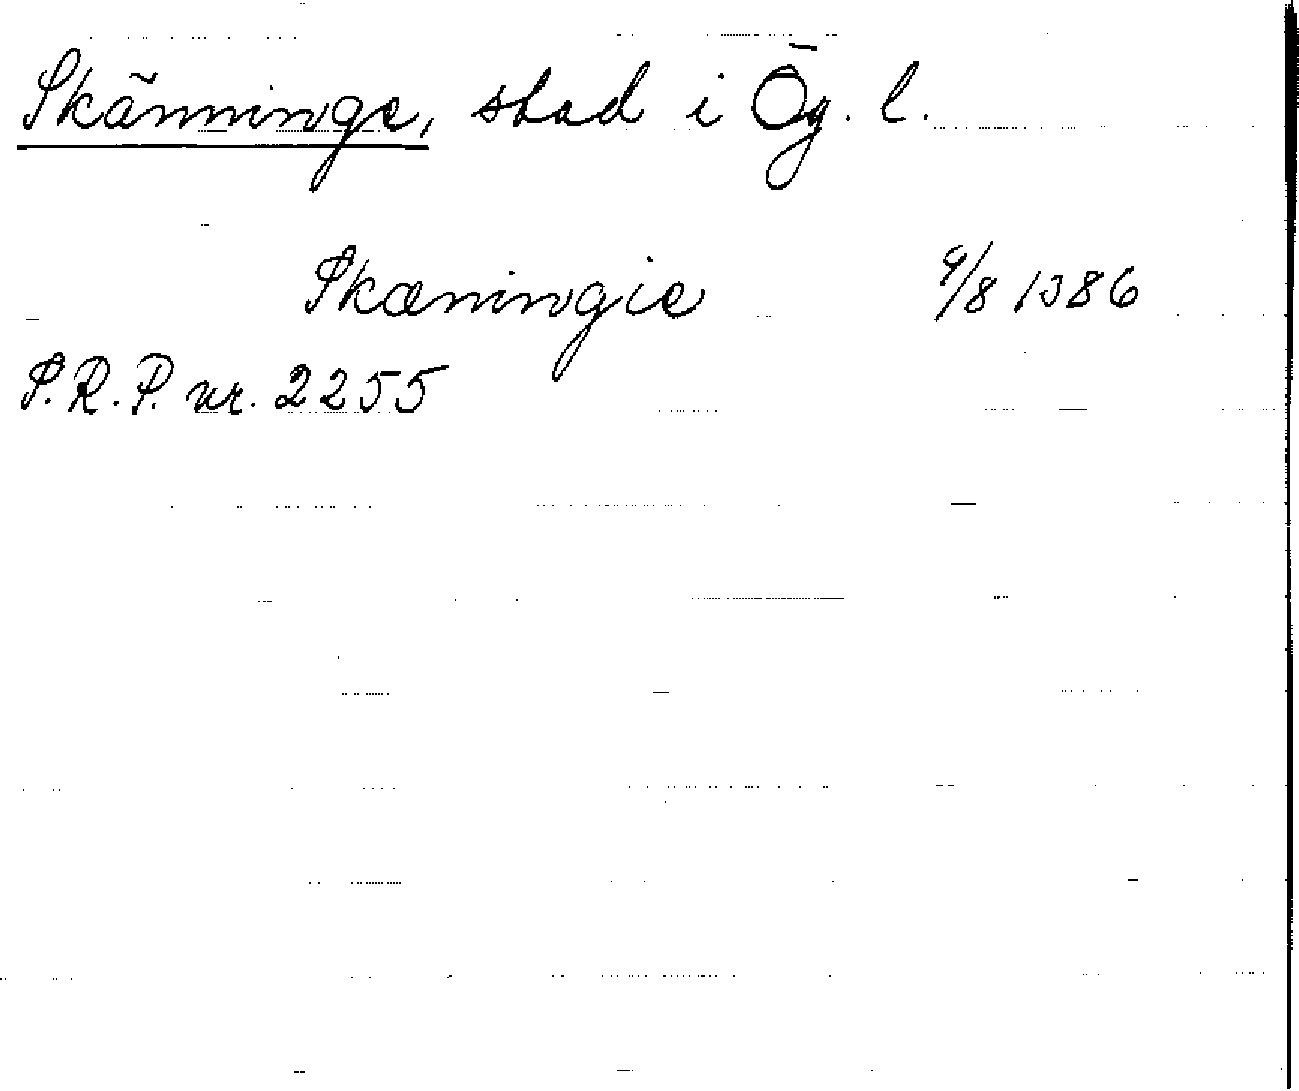 Skänninge, stad i Ög. l.
Skæningie 9/8 1386
S.R.P. nr. 2255